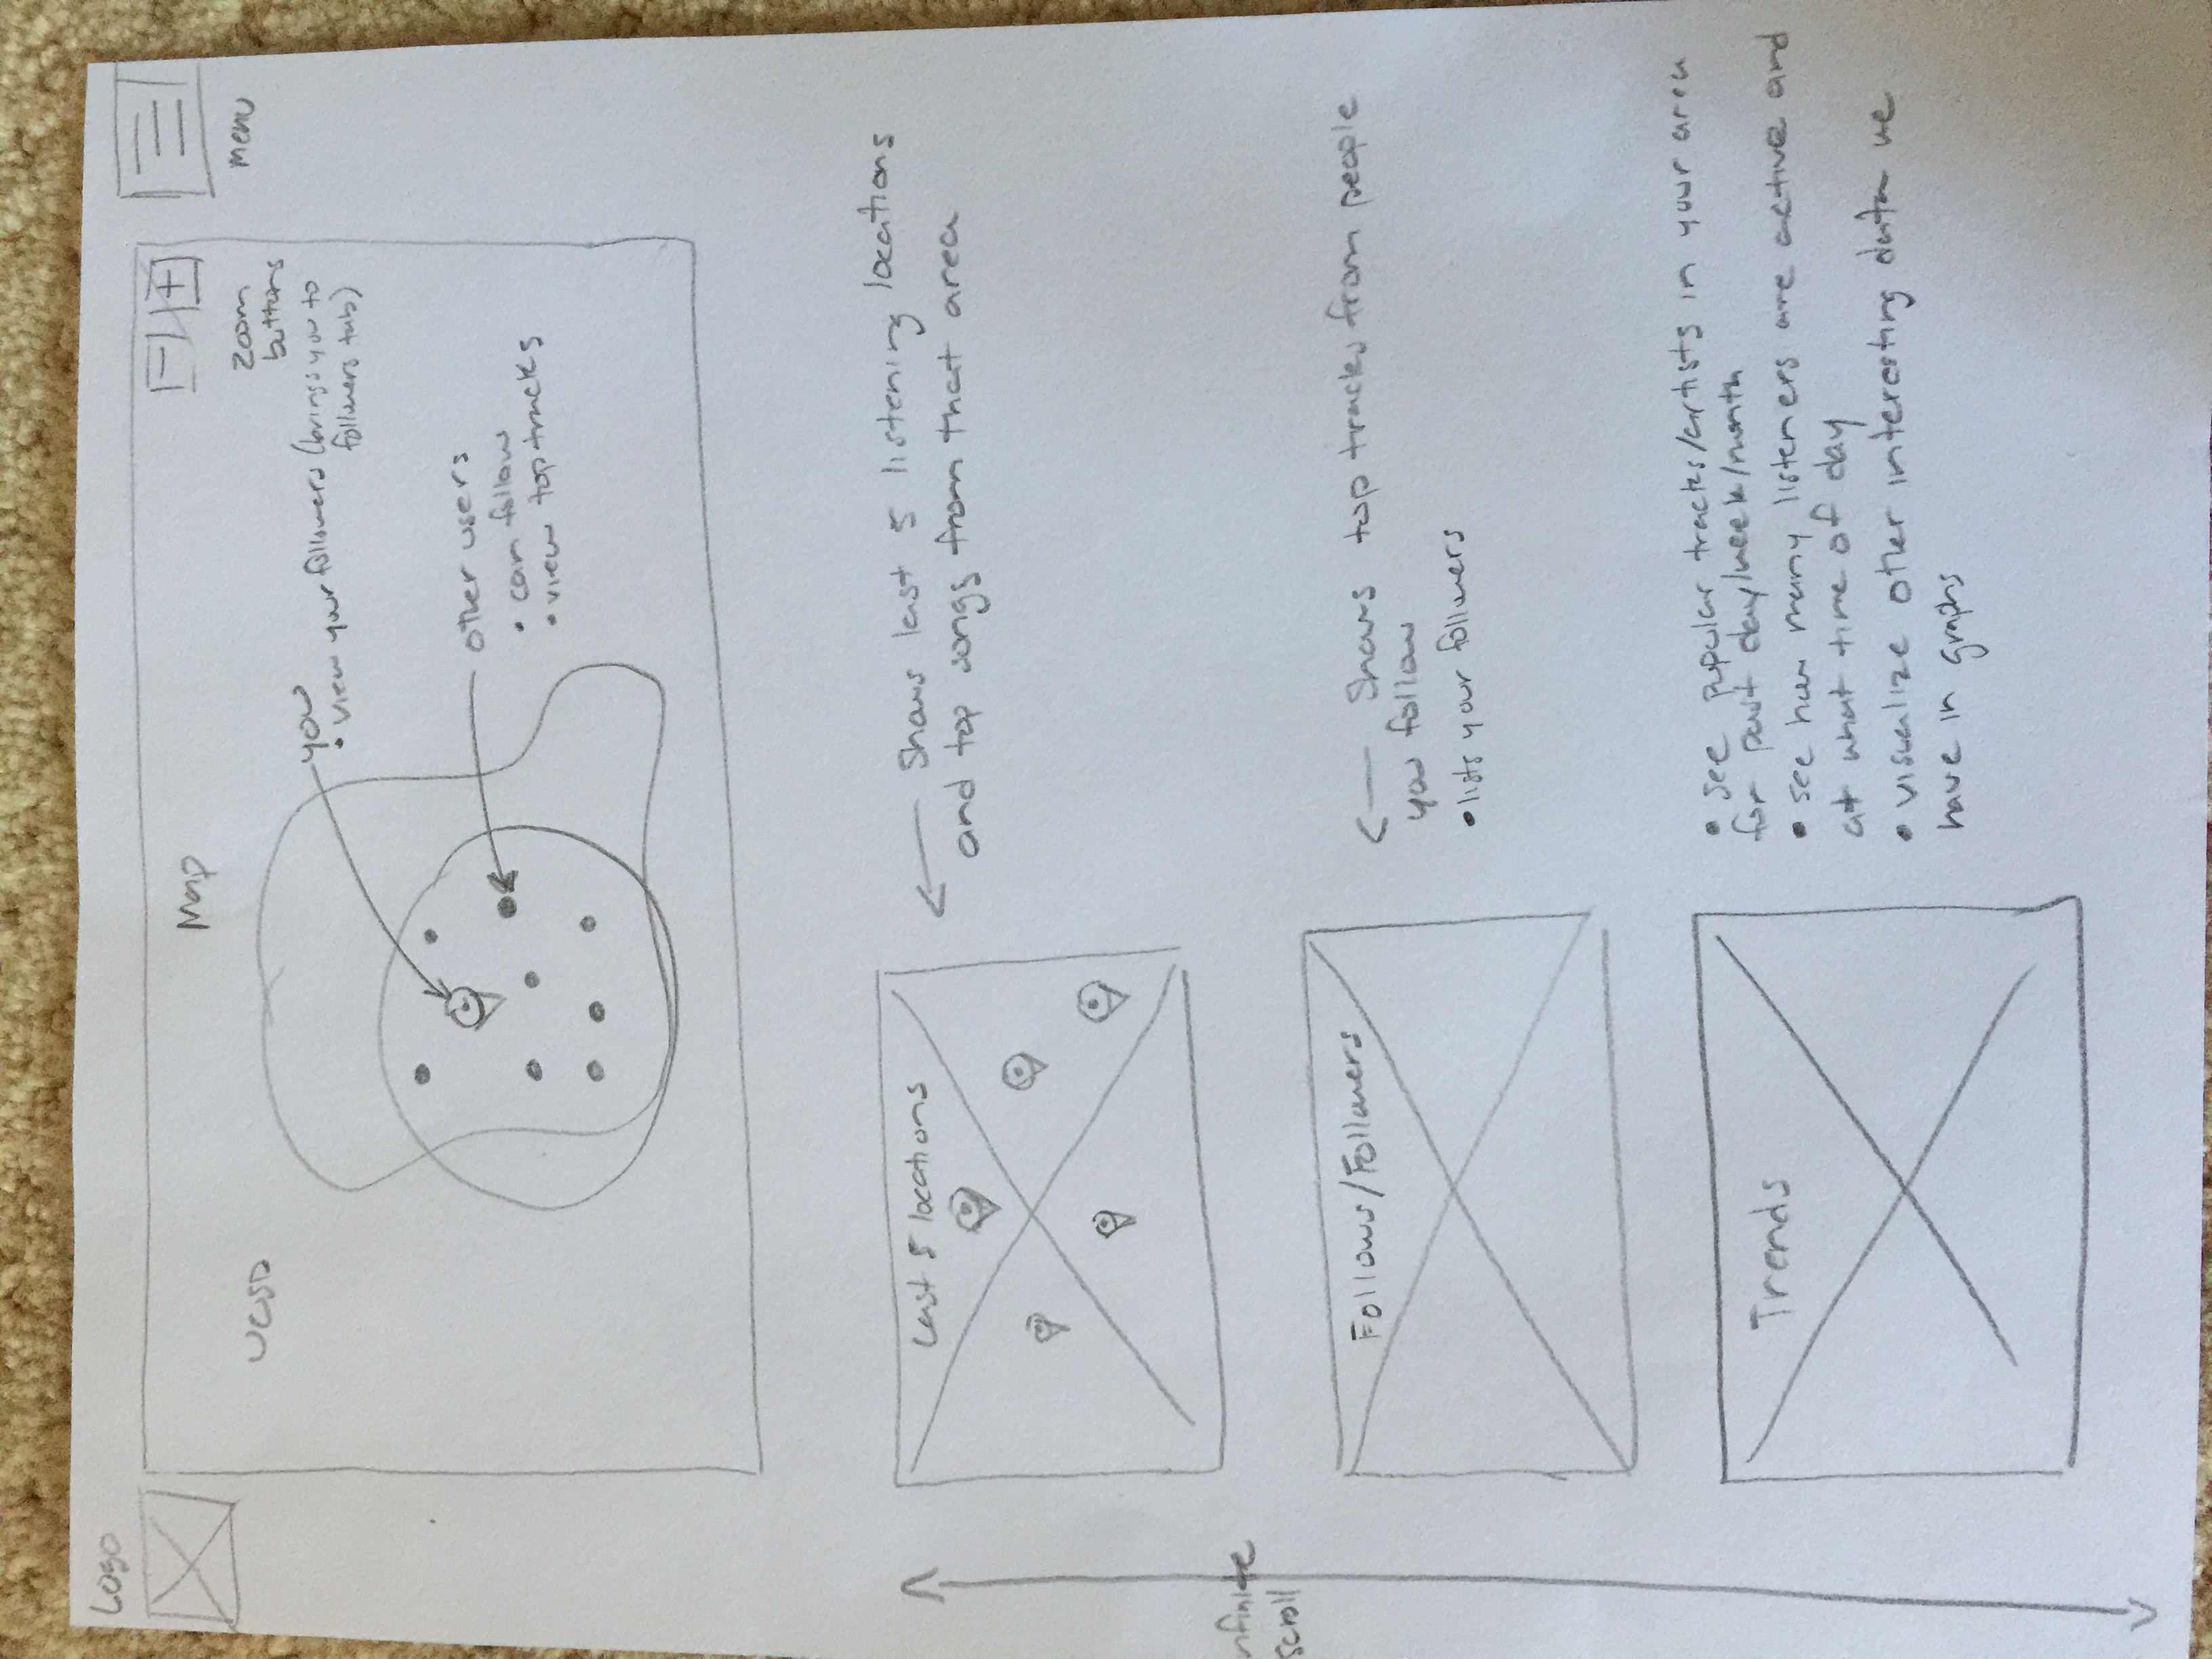 Logo
Map
menu
UCSD
zoom
buttons
you
• view your followers (brings you to
followers tab)
other users
• can follow
• view top tracks
Last 5 locations
← Shows last 5 listening locations
and top songs from that area
nfinite
scroll
Follows/Followers
← Shows top tracks from people
you follow
• lists your followers
Trends
• see popular tracks/artists in your area
for past day/week/month
• see how many listeners are active and
at what time of day
• visualize other interesting data we
have in graphs